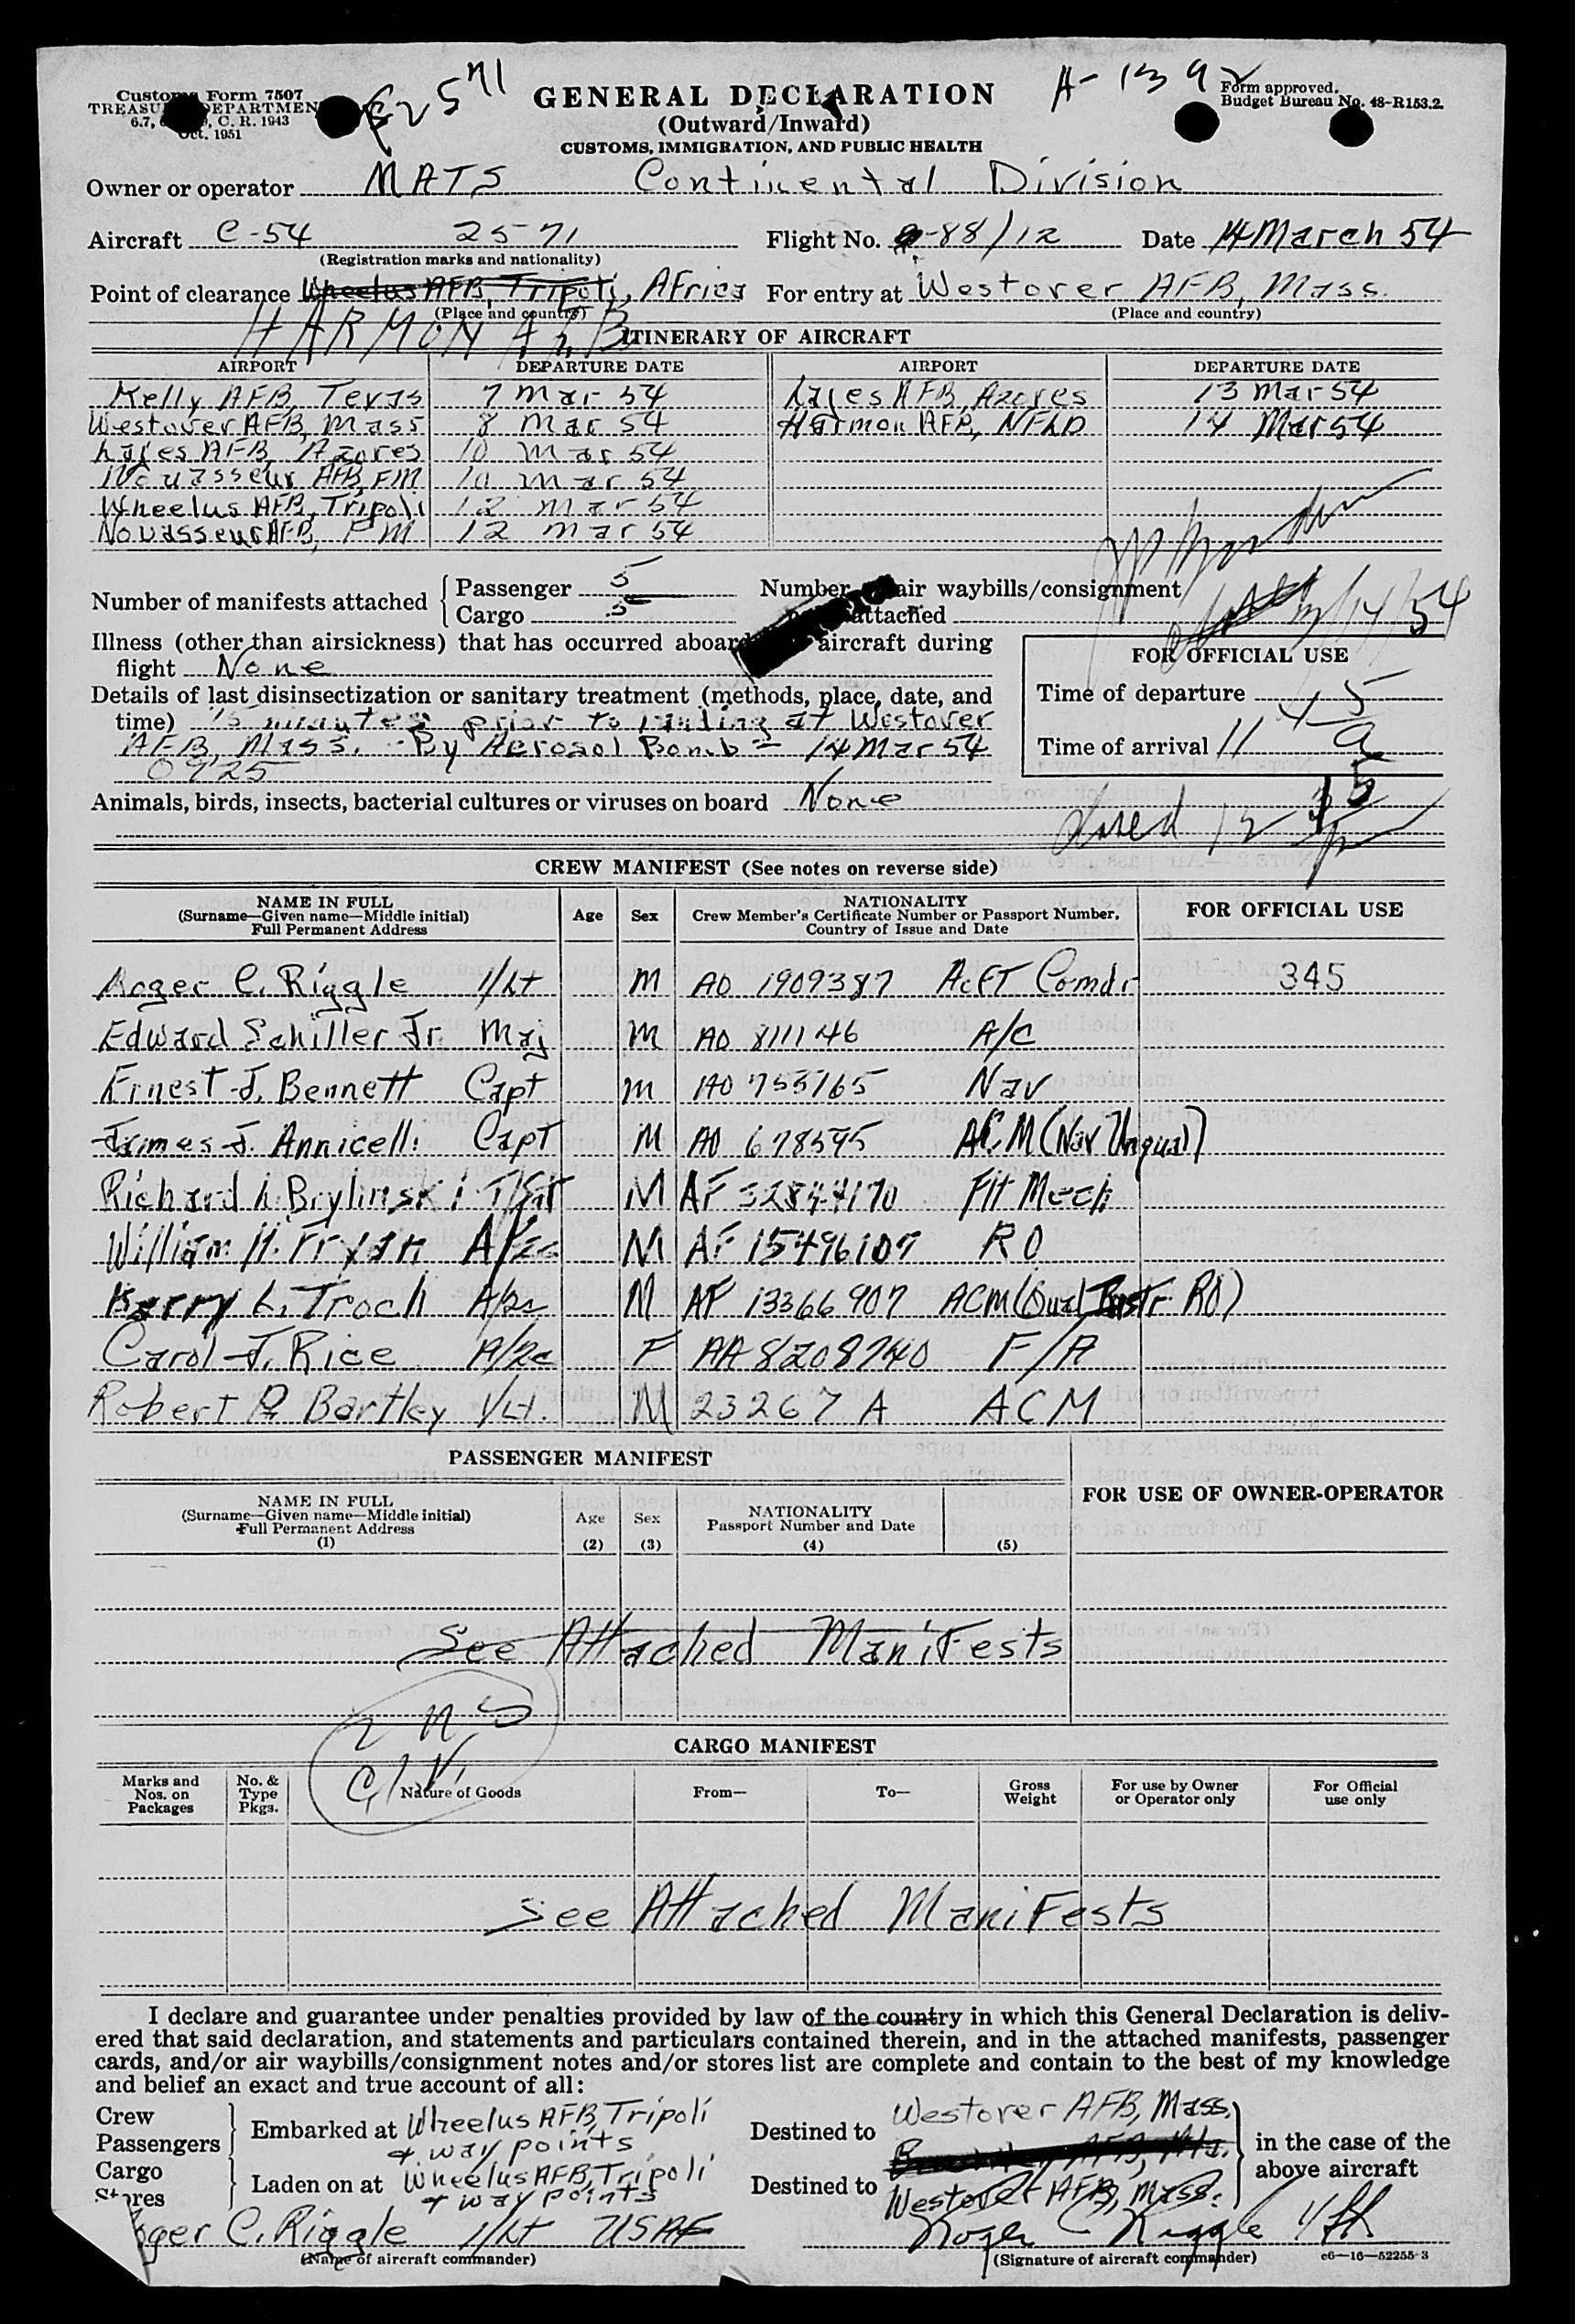 Form 7507
C. R. 1943
Oct. 1951
2571
GENERAL DECLARATION
(Outward/Inward)
CUSTOMS, IMMIGRATION, AND PUBLIC HEALTH
A-1392
Form approved.
Budget Bureau No. 48-R153.2.
Owner or operator MATS Continental Division
Aircraft C-54 2571 Flight No. -88/12 Date 14 March 54
(Registration marks and nationality)
Point of clearance Wheelus AFB, Tripoli, Africa For entry at Westover AFB, Mass.
(Place and country) (Place and country)
HARMON AFB
ITINERARY OF AIRCRAFT
AIRPORT DEPARTURE DATE AIRPORT DEPARTURE DATE
Kelly AFB, Texas 7 Mar 54 Lajes AFB, Azores 13 Mar 54
Westover AFB, Mass 8 Mar 54 Harmon AFB, NFLD 14 Mar 54
Lajes AFB Azores 10 Mar 54
Nouasseur AFB, FM 10 Mar 54
Wheelus AFB, Tripoli 12 Mar 54
Nouasseur AFB, FM 12 Mar 54
Number of manifests attached Passenger 5
Cargo 5
Number air waybills/consignment
attached
3/14/54
Illness (other than airsickness) that has occurred aboard aircraft during
flight None
Details of last disinsectization or sanitary treatment (methods, place, date, and
time) 15 minutes prior to landing at Westover
AFB, Mass. - By Aerosol Bomb - 14 Mar 54
0925
FOR OFFICIAL USE
Time of departure
Time of arrival 11 45 a
Animals, birds, insects, bacterial cultures or viruses on board None
CREW MANIFEST (See notes on reverse side)
NAME IN FULL
(Surname—Given name—Middle initial)
Full Permanent Address
Age Sex
NATIONALITY
Crew Member's Certificate Number or Passport Number,
Country of Issue and Date
FOR OFFICIAL USE
Roger C. Riggle 1/Lt M AO 1909387 AcFT Comdr 345
Edward Schiller Jr. Maj M AO 811146 A/C
Ernest J. Bennett Capt M AO 755765 Nav
James J. Annicelli Capt M AO 678595 ACM (Nav Unqual)
Richard L. Brylinski T/Sgt M AF 32844170 Flt Mech
William H. Fryan A/2c M AF 15496107 RO
L. Troch A/2c M AF 13366907 ACM (Qual Instr RO)
Carol J. Rice A/2c F AA 8208740 F/A
Robert P. Bartley 1/Lt. M 23267 A ACM
PASSENGER MANIFEST
NAME IN FULL
(Surname—Given name—Middle initial)
Full Permanent Address
(1)
Age
(2)
Sex
(3)
NATIONALITY
Passport Number and Date
(4) (5)
FOR USE OF OWNER-OPERATOR
See Attached Manifests
CARGO MANIFEST
Marks and
Nos. on
Packages
No. &
Type
Pkgs.
Nature of Goods
From—
To—
Gross
Weight
For use by Owner
or Operator only
For Official
use only
See Attached Manifests
I declare and guarantee under penalties provided by law of the country in which this General Declaration is deliv-
ered that said declaration, and statements and particulars contained therein, and in the attached manifests, passenger
cards, and/or air waybills/consignment notes and/or stores list are complete and contain to the best of my knowledge
and belief an exact and true account of all:
Crew
Passengers
Embarked at Wheelus AFB, Tripoli
+ way points
Destined to Westover AFB, Mass.
Cargo
Stores
Laden on at Wheelus AFB, Tripoli
+ way points
Destined to Westover AFB, Mass.
in the case of the
above aircraft
C. Riggle 1/Lt USAF Roger C Riggle 1/Lt
(Name of aircraft commander) (Signature of aircraft commander) c6—16—52255-3